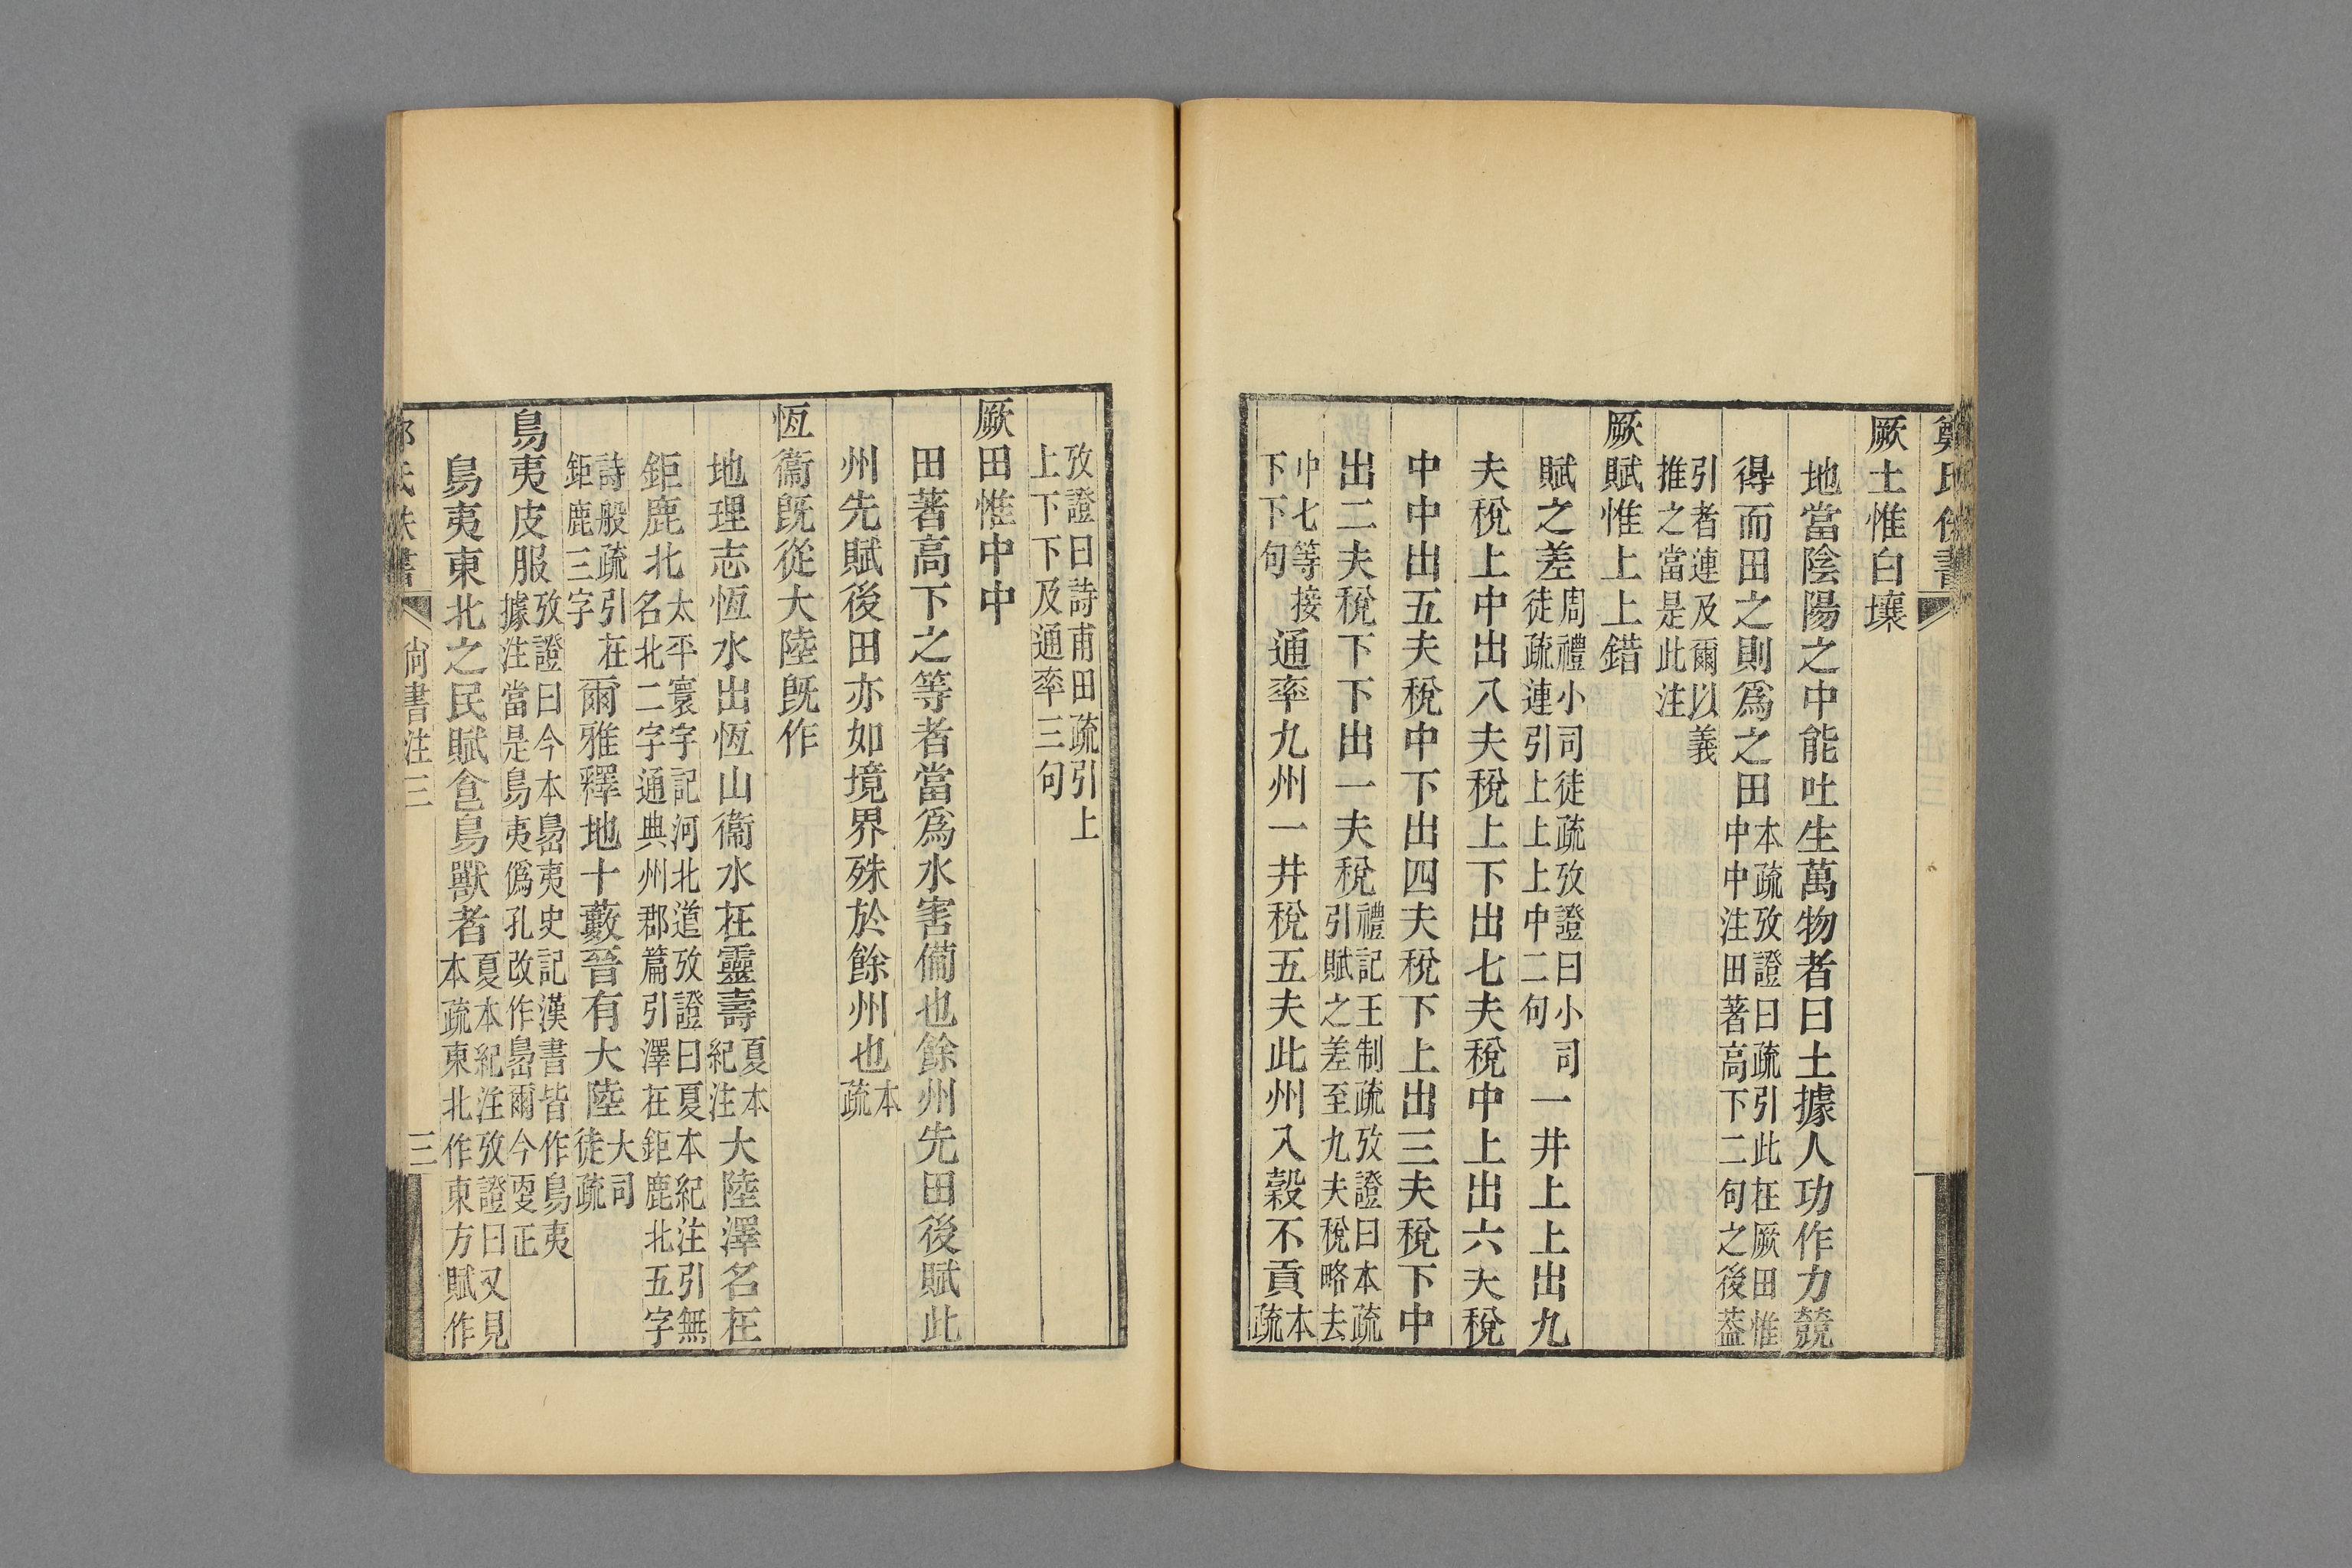 鄭氏佚書
厥土惟白壤
地當陰陽之中能吐生萬物者曰土據人功作力競
得而田之則爲之田本疏攷證曰疏引此在厥田惟
中中注田著高下二句之後葢
引者連及爾以義
推之當是此注
厥賦惟上上錯
賦之差周禮小司徒疏攷證曰小司
徒疏連引上上上中二句一井上上出九
夫稅上中出八夫稅上下出七夫稅中上出六夫稅
中中出五夫稅中下出四夫稅下上出三夫稅下中
出二夫稅下下出一夫稅禮記王制疏攷證曰本疏
引賦之差至九夫稅略去
中七等接
下下句通率九州一井稅五夫此州入穀不貢本
疏
攷證曰詩甫田疏引上
上下下及通率三句
厥田惟中中
田著高下之等者當爲水害備也餘州先田後賦此
州先賦後田亦如境界殊於餘州也本
疏
恆衞既從大陸既作
地理志恆水出恆山衞水在靈壽夏本
紀注大陸澤名在
鉅鹿北太平寰宇記河北道攷證曰夏本紀注引無
名北二字通典州郡篇引澤在鉅鹿北五字
詩般疏引在
鉅鹿三字爾雅釋地十藪晉有大陸大司
徒疏
鳥夷皮服攷證曰今本島夷史記漢書皆作鳥夷
據注當是鳥夷僞孔改作島爾今㪅正
鳥夷東北之民賦食鳥獸者夏本紀注攷證曰又見
本疏東北作東方賦作
氏佚書
尙書注三
三